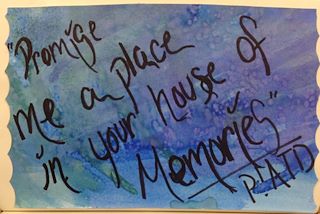 "Promise
me a place
in your house of
Memories"
P!ATD